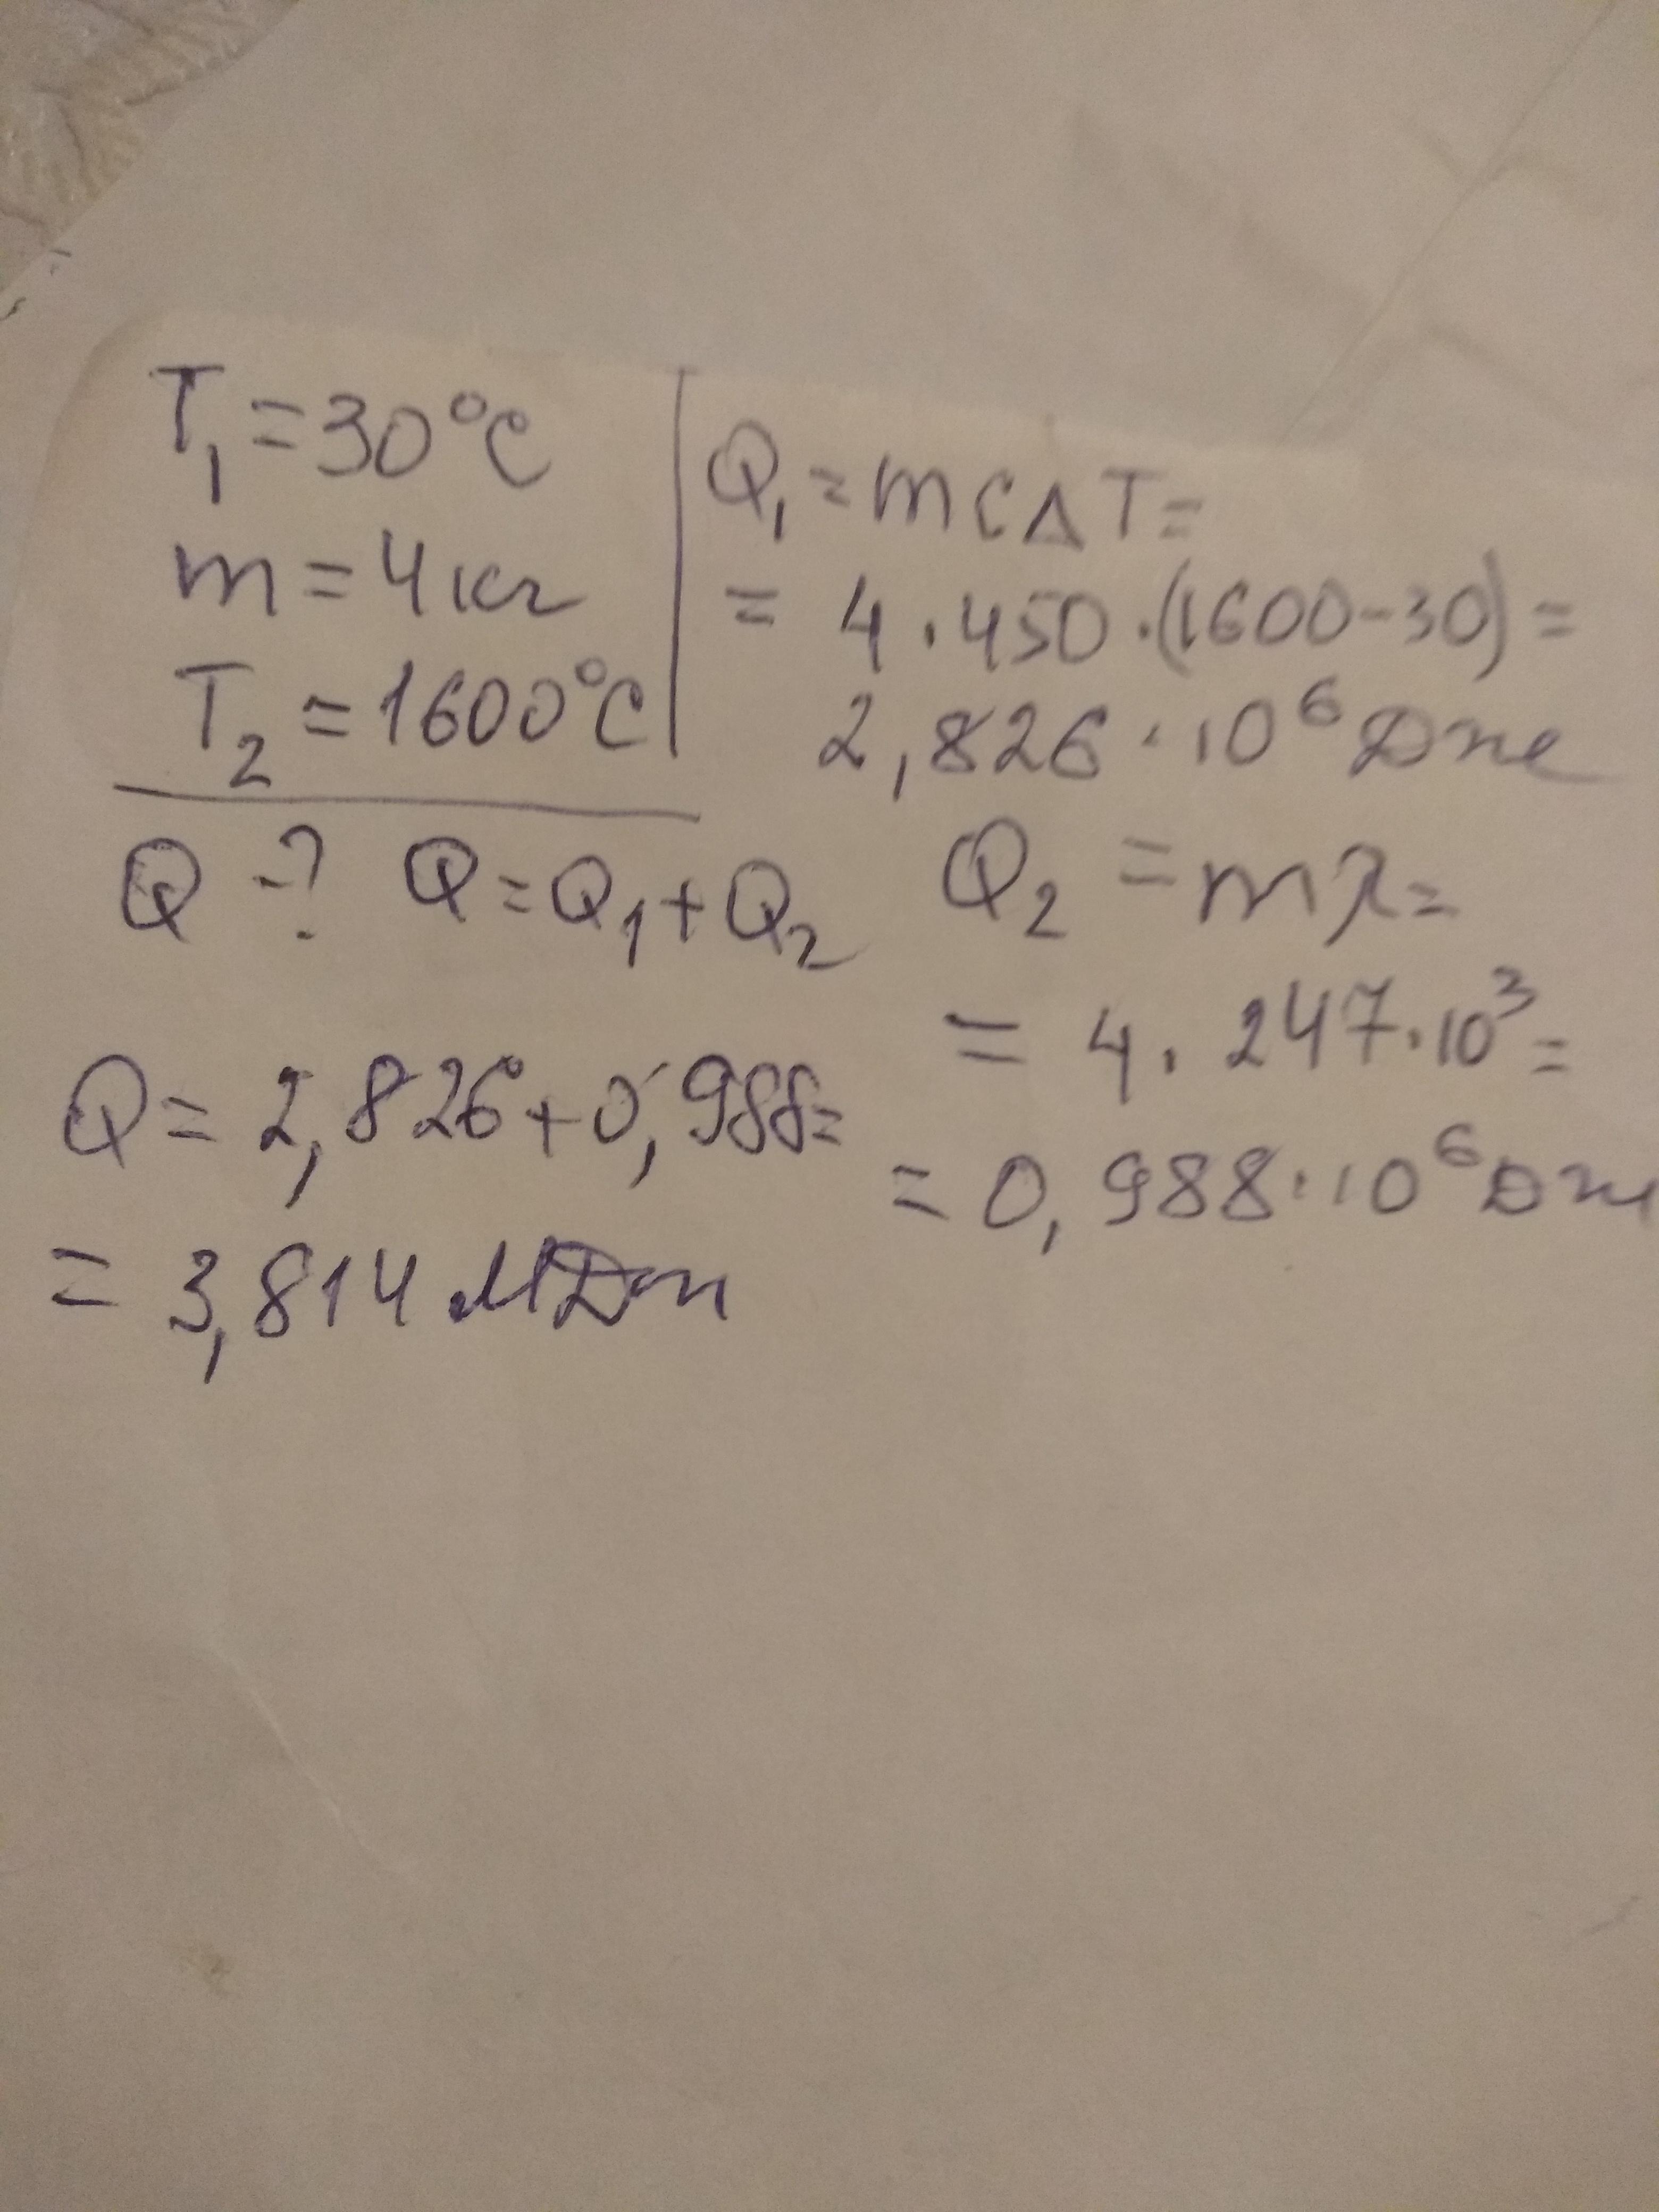 T₁ = 30°C
m = 4 кг
T₂ = 1600°C
Q - ? Q = Q₁ + Q₂
Q₁ = mcΔT =
= 4 · 450 · (1600 - 30) =
2,826 · 10⁶ Дж
Q₂ = mλ =
= 4 · 247 · 10³ =
= 0,988 · 10⁶ Дж
Q = 2,826 + 0,988 =
= 3,814 МДж